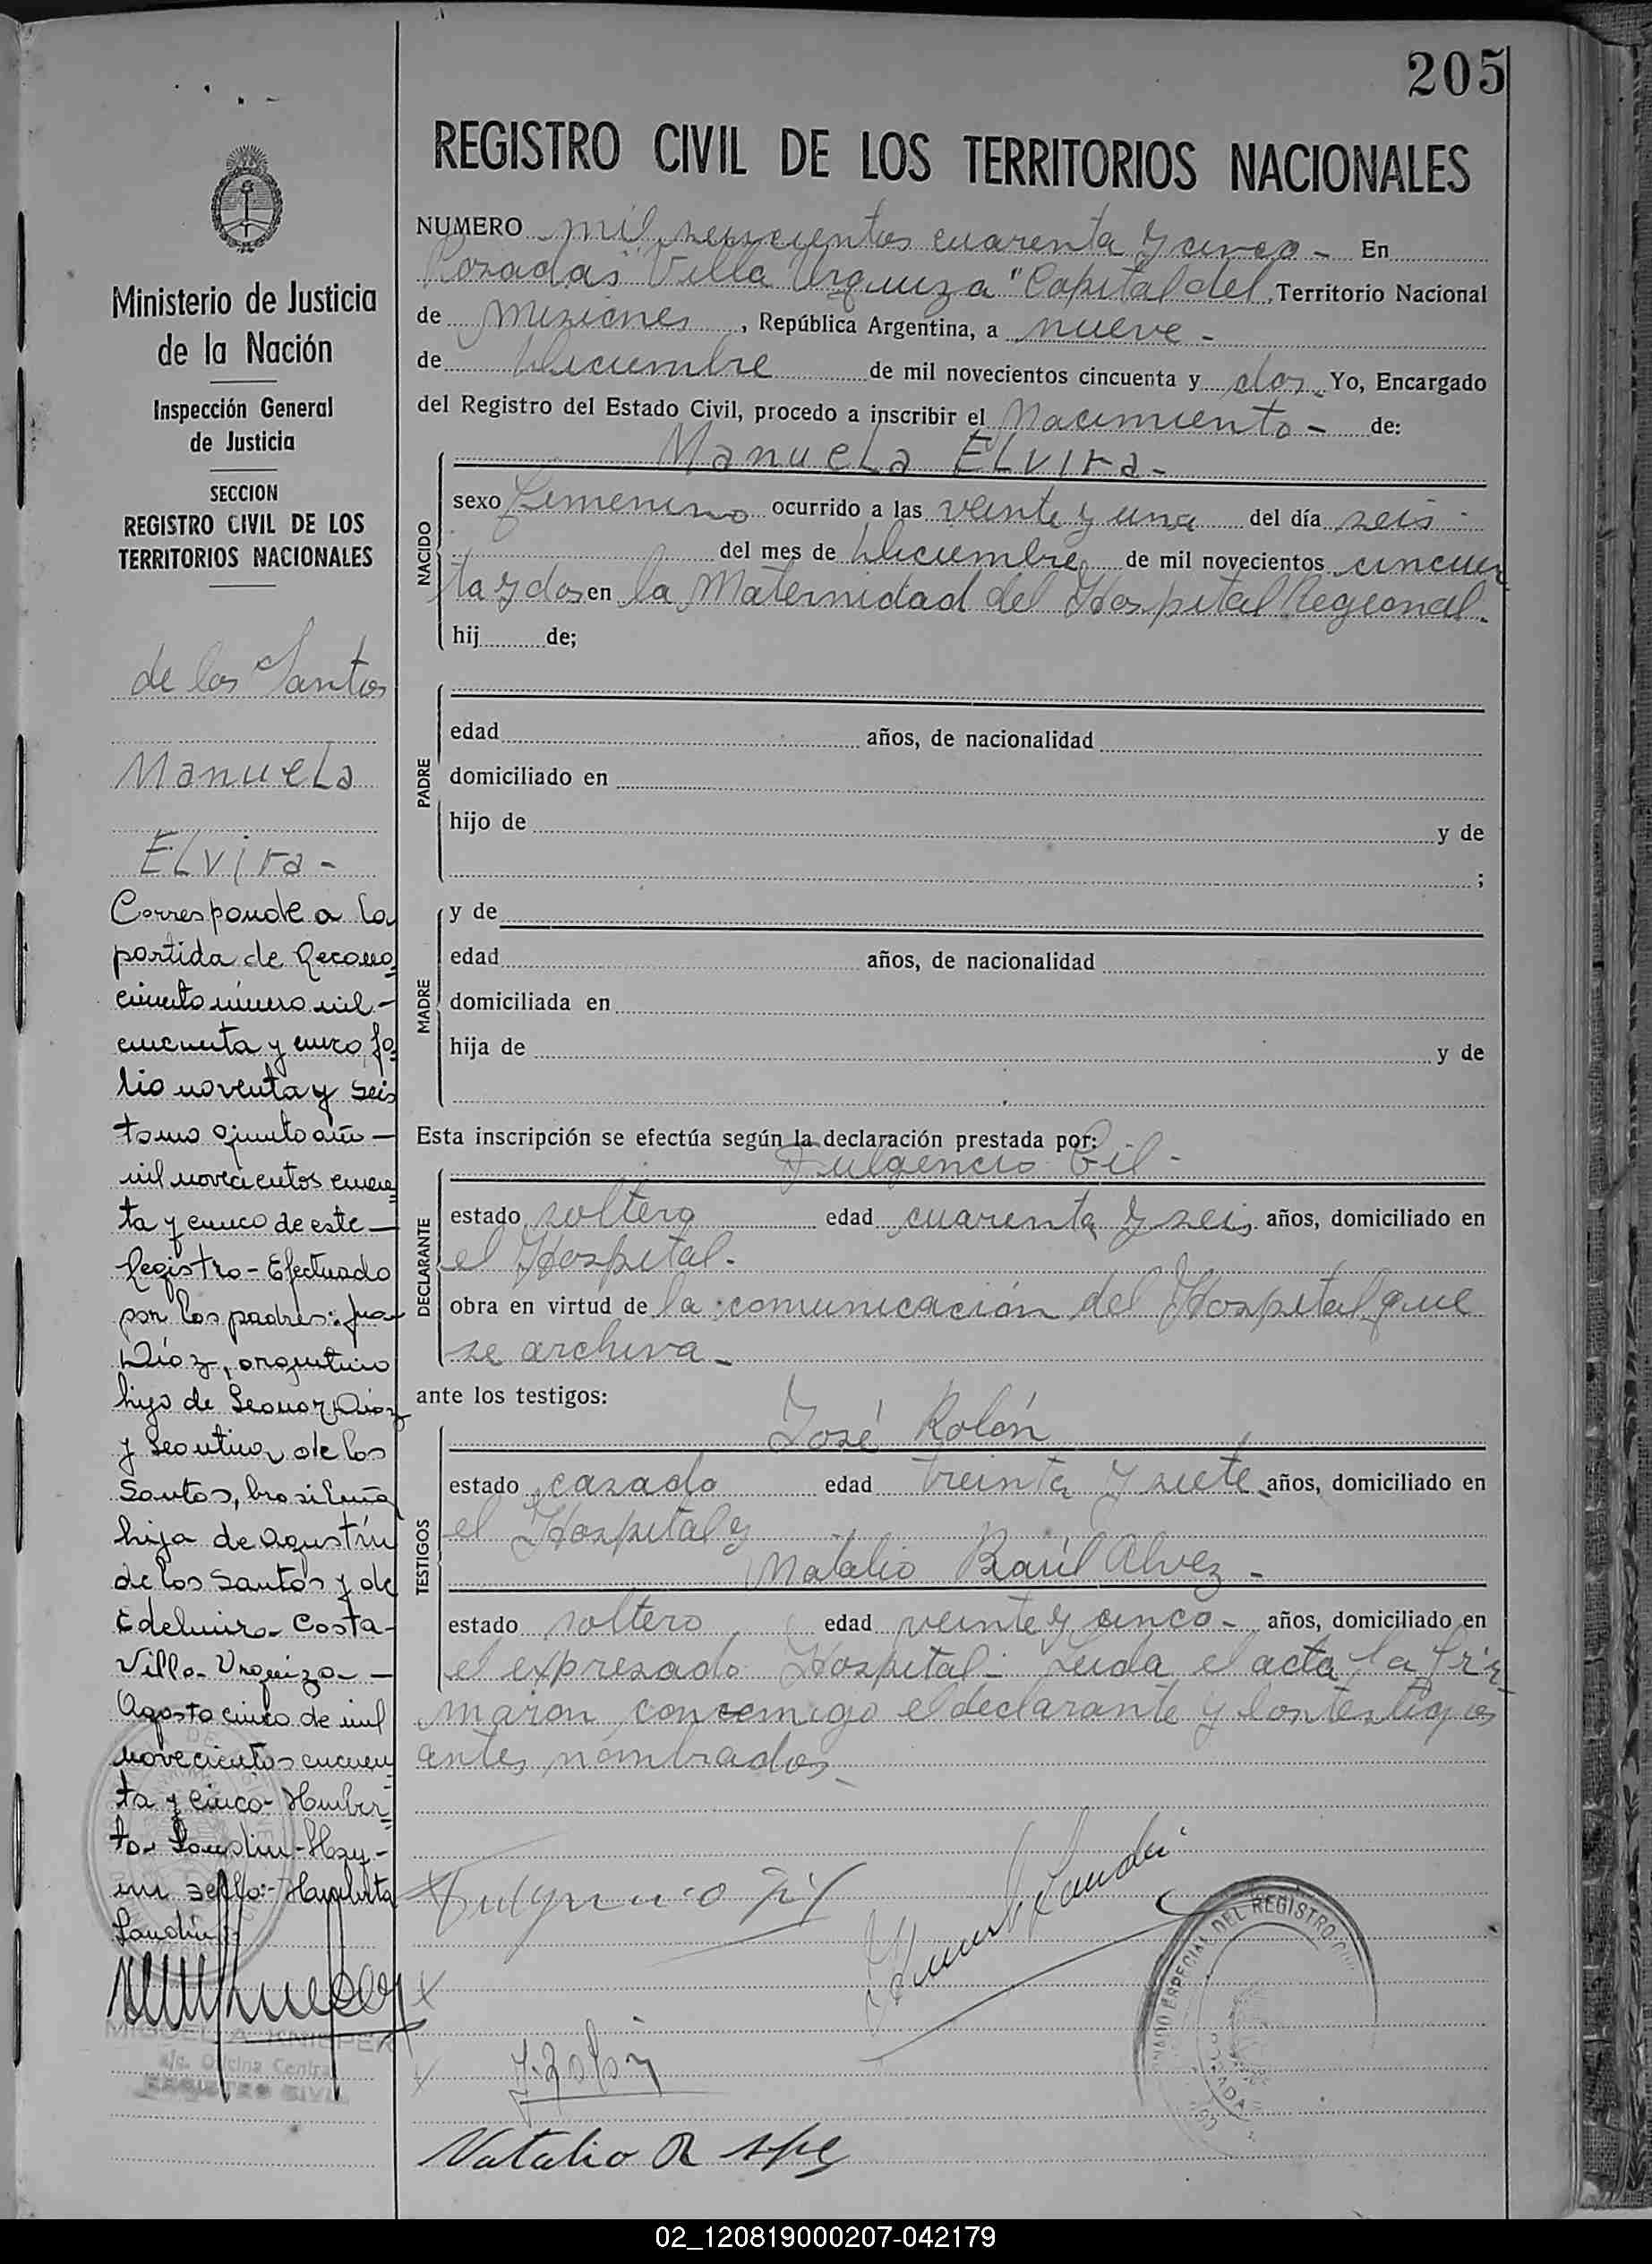 205
REGISTRO CIVIL DE LOS TERRITORIOS NACIONALES
Ministerio de Justicia
de la Nación
Inspección General
de Justicia
SECCION
REGISTRO CIVIL DE LOS
TERRITORIOS NACIONALES
de los Santos
Manuela
Elvira -
Corresponde a la
partida de Recono
cimiento número mil -
cincuenta y cinco fo
lio noventa y seis
tomo quinto año -
mil novecientos cincuen
ta y cinco de este -
Registro - Efectuado
por los padres: Jua
Díaz, argentino
hijo de Leonor Díaz
y Leontina de los
Santos, brasileña
hija de Agustín
de los Santos y de
Edelmira Costa -
Villa Urquiza -
Agosto cinco de mil
novecientos cincuen
ta y cinco - Humber
to Landin - Hay -
un sello: - Humberto
Landin
MIGUEL A. KNIPPER
a/c. Oficina Central
REGISTRO CIVIL
NUMERO mil seiscientos cuarenta y cinco - En
Posadas "Villa Urquiza" Capital del Territorio Nacional
de Misiones, República Argentina, a nueve -
de Diciembre de mil novecientos cincuenta y dos Yo, Encargado
del Registro del Estado Civil, procedo a inscribir el Nacimiento - de:
Manuela Elvira -
NACIDO
sexo femenino ocurrido a las veinte y una del día seis -
del mes de Diciembre de mil novecientos cincuen
ta y dos en la Maternidad del Hospital Regional.
hij de;
PADRE
edad años, de nacionalidad
domiciliado en
hijo de y de
;
MADRE
y de
edad años, de nacionalidad
domiciliada en
hija de y de
Esta inscripción se efectúa según la declaración prestada por:
Fulgencio Gil -
DECLARANTE
estado soltero edad cuarenta y seis años, domiciliado en
el Hospital.
obra en virtud de la comunicación del Hospital que
se archiva -
ante los testigos:
José Rolón
TESTIGOS
estado casado edad treinta y siete años, domiciliado en
el Hospital y
Natalio Raúl Alvez -
estado soltero edad veinte y cinco - años, domiciliado en
el expresado Hospital - Leida el acta la fir
maron conmigo el declarante y los testigos
antes nombrados
Fulgencio Gil
Humb Landin
J. Rolón
Natalio R
DEL REGISTRO
02_120819000207-042179